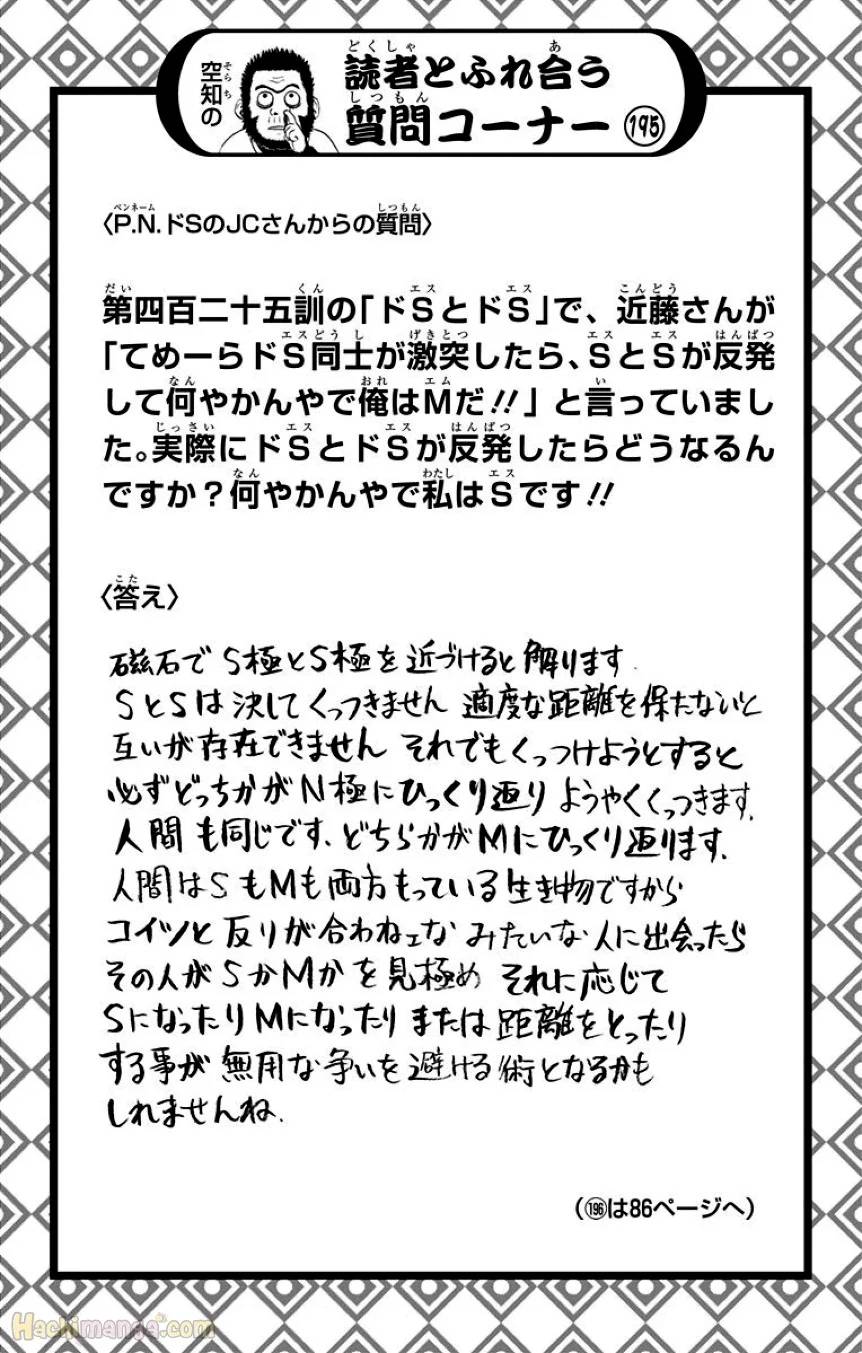 空知の
読者とふれ合う
質問コーナー 195
〈P.N.ドSのJCさんからの質問〉
第四百二十五訓の「ドSとドS」で、近藤さんが
「てめーらドS同士が激突したら、SとSが反発
して何やかんやで俺はMだ!!」と言っていまし
た。実際にドSとドSが反発したらどうなるん
ですか？何やかんやで私はSです!!
〈答え〉
磁石でS極とS極を近づけると解ります.
SとSは決してくっつきません 適度な距離を保たないと
互いが存在できません それでもくっつけようとすると
必ずどっちかがN極にひっくり返り ようやくくっつきます.
人間も同じです、どちらかがMにひっくり返ります.
人間はSもMも両方もっている生き物ですから
コイツと反りが合わねェな みたいな人に出会ったら
その人がSかMかを見極め それに応じて
SになったりMになったり または距離をとったり
する事が無用な争いを避ける術となるかも
しれませんね.
(196は86ページへ)
Hachimanga.com